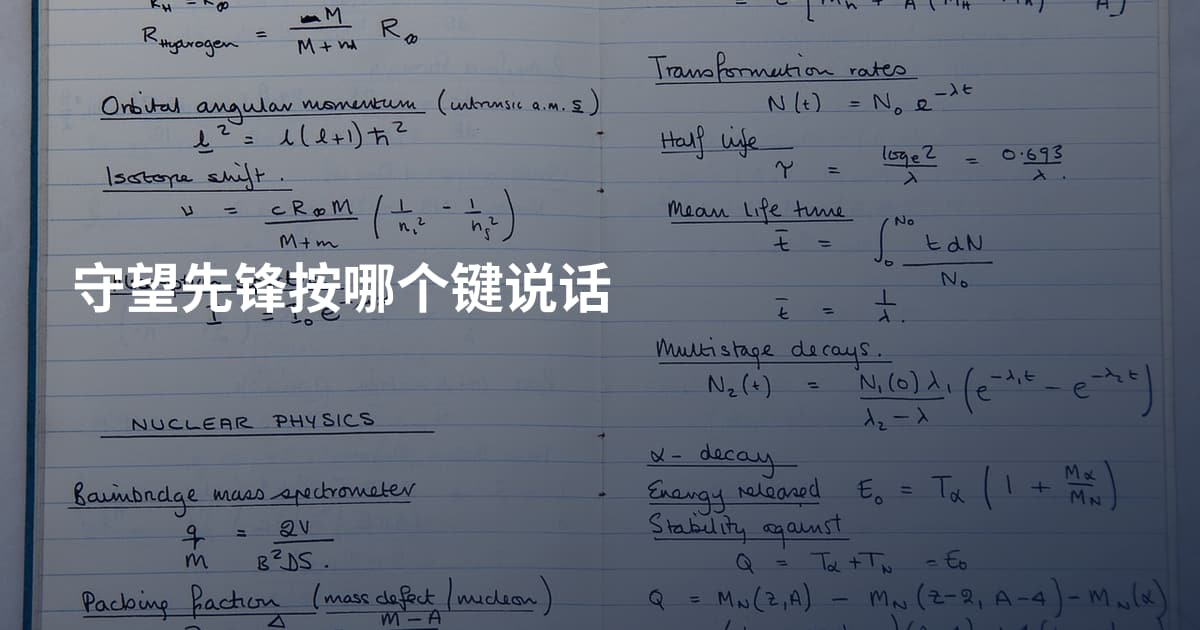 R Hydrogen = M / M + m R∞
Orbital angular momentum (intrinsic a.m. s)
l² = l(l+1)ħ²
Isotope shift.
ν = cR∞M / M+m (1/n₁² - 1/n₅²)
守望先锋按哪个键说话
NUCLEAR PHYSICS
Bainbridge mass spectrometer
q/m = 2V / B²DS.
Packing fraction (mass defect/nucleon)
M-A
Transformation rates
N(t) = N₀ e^-λt
Half life
τ = logₑ2 / λ = 0.693 / λ.
Mean life time
t̄ = ∫₀^N₀ t dN / N₀
t̄ = 1/λ.
Multistage decays.
N₂(t) = N₁(0)λ₁ / λ₂-λ (e^-λ₁t - e^-λ₂t)
α- decay
Energy released E₀ = Tα (1 + Mα/MN)
Stability against
Q = Tα + TN = E₀
Q = MN(Z,A) - MN(Z-2, A-4) - MN(α)